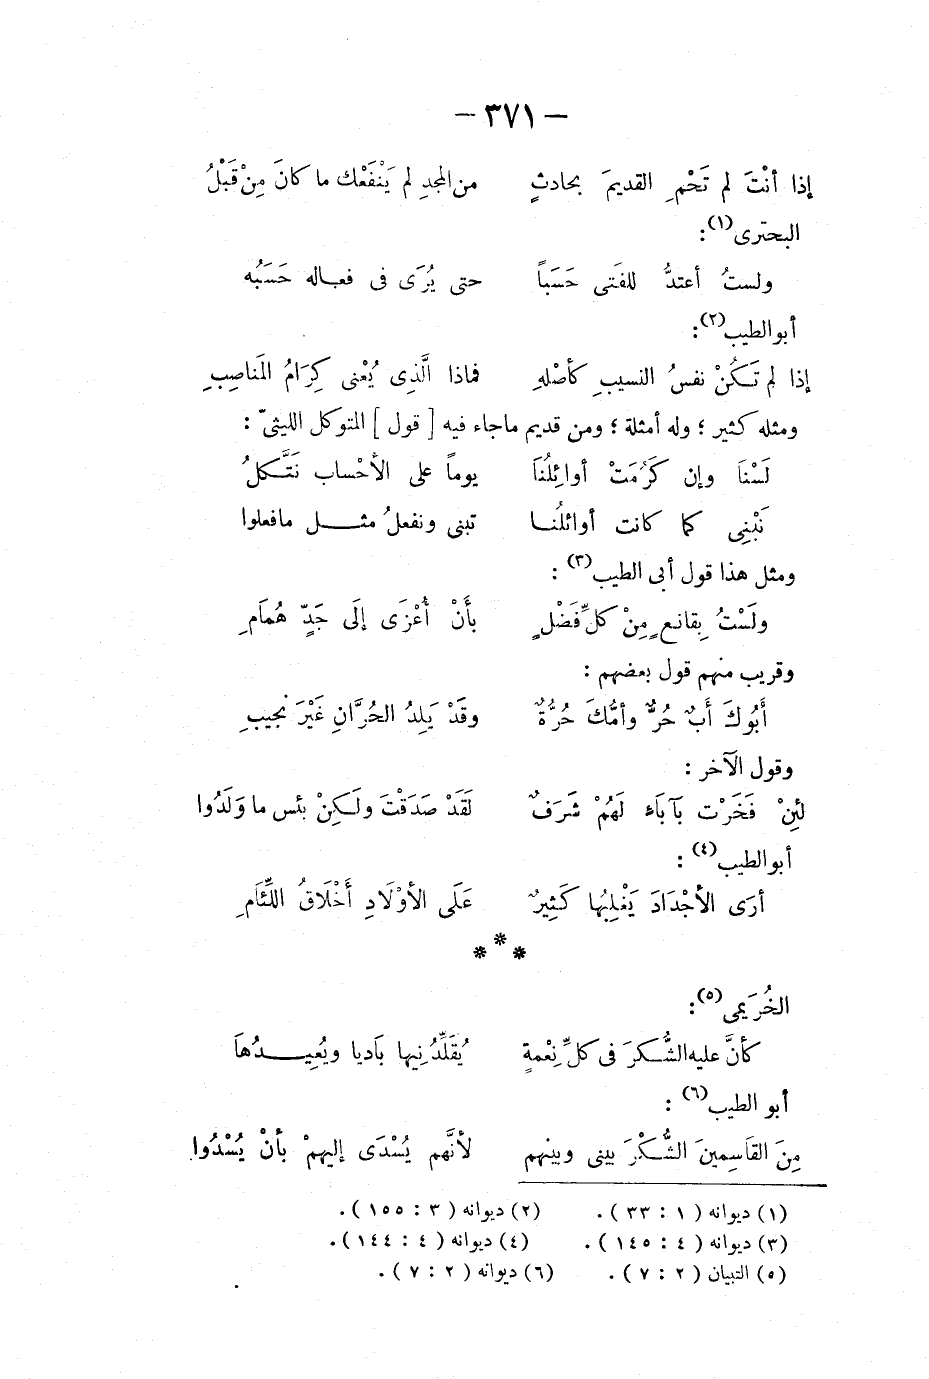 — ٣٧١ —
إذا أنْتَ لم تَحْمِ القديمَ بحادثٍ من المجدِ لم يَنْفَعْك ما كانَ مِنْ قَبْلُ
البحترى(١):
ولستُ أعتدُّ للفَتى حَسَباً حتى يُرَى فى فعاله حَسَبُه
أبو الطيب(٢):
إذا لم تَكُنْ نفسُ النسيبِ كأصْلهِ فماذا الَّذِى يُغْنى كِرَامُ المَناصِبِ
ومثله كثير ؛ وله أمثلة ؛ ومن قديم ماجاء فيه [ قول ] المتوكل الليثىّ :
لَسْنَا وإن كَرُمَتْ أوائِلُنَا يوماً على الأحْساب نَتَّكلُ
نَبْنِى كما كانت أوائلُنا تبنى ونفعلُ مثل مافعلوا
ومثل هذا قول أبى الطيب(٣) :
ولَسْتُ بِقانعٍ مِنْ كلِّ فَضْلٍ بأَنْ أُعْزَى إلَى جَدٍّ هُمَامِ
وقريب منهم قول بعضهم :
أَبُوكَ أَبٌ حُرٌّ وأمُّكَ حُرَّةٌ وقَدْ يَلِدُ الحُرَّانِ غَيْرَ نجيبِ
وقول الآخر :
لئِنْ فَخَرْت بآبَاء لَهُمْ شَرَفٌ لَقَدْ صَدَقْتَ ولَكِنْ بئس ما وَلَدُوا
أبو الطيب(٤) :
أرَى الأجْدَادَ يَغْلِبُها كَثِيرٌ عَلَى الأوْلَادِ أَخْلَاقُ اللِّئَامِ
* * *
الخُرَيمى(٥):
كأنَّ عليه الشُّكرَ فى كلِّ نِعْمةٍ يُقَلِّدُنِيها بَاديا ويُعِيدُهَا
أبو الطيب(٦) :
مِنَ القَاسِمينَ الشُّكْرَ بينى وبينهم لأنَّهم يُسْدَى إليهمْ بأنْ يُسْدُوا
(١) ديوانه ( ١ : ٣٣ ) . (٢) ديوانه ( ٣ : ١٥٥ ) .
(٣) ديوانه ( ٤ : ١٤٥ ) . (٤) ديوانه ( ٤ : ١٤٤ ) .
(٥) التبيان ( ٢ : ٧ ) . (٦) ديوانه ( ٢ : ٧ ) .